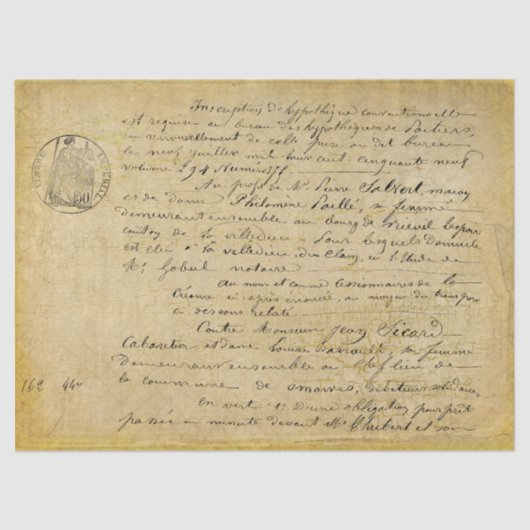 Inscription d'hypothèque conventionnelle
est requise au bureau des hypothèques de Poitiers,
en renouvellement de celle prise au dit bureau
le neuf juillet mil huit cent cinquante neuf
volume 294 Numéro
TIMBRE IMPERIAL
50
Au profit de Mr. Pierre Salvert, maçon
et de dame Philomène Paillé, sa femme
demeurant ensemble au bourg de Nieuil l'espoir
canton de la villedieu - Pour lesquels Domicile
est élu à la villedieu du Clain, en l'Etude de
Mr. Gobul notaire
Au nom et comme cessionnaires de la
Créance ci-après énoncée, au moyen du transport
ci dessous relaté
Contre Monsieur Jean Sicard
Cabaretier et dame Louise, sa femme
demeurant ensemble au chef lieu de
la commune de Smarves, débiteurs solidaires
162 44
En vertu 1º D'une obligation pour prêt
passée en minute devant Me. Chibert et son